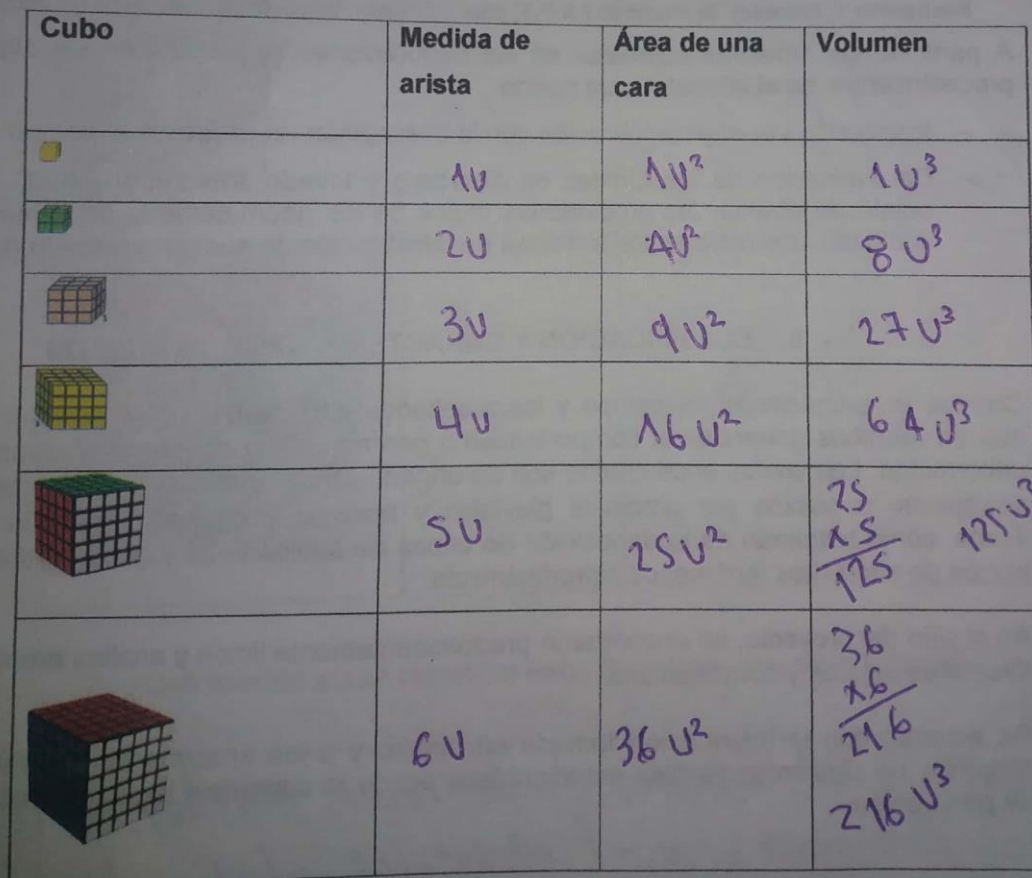 Cubo
Medida de
arista
Área de una
cara
Volumen
1U
1U²
1U³
2U
4U²
8U³
3U
9U²
27U³
4U
16U²
64U³
5U
25U²
25
x5
125
125U³
6U
36U²
36
x6
216
216U³